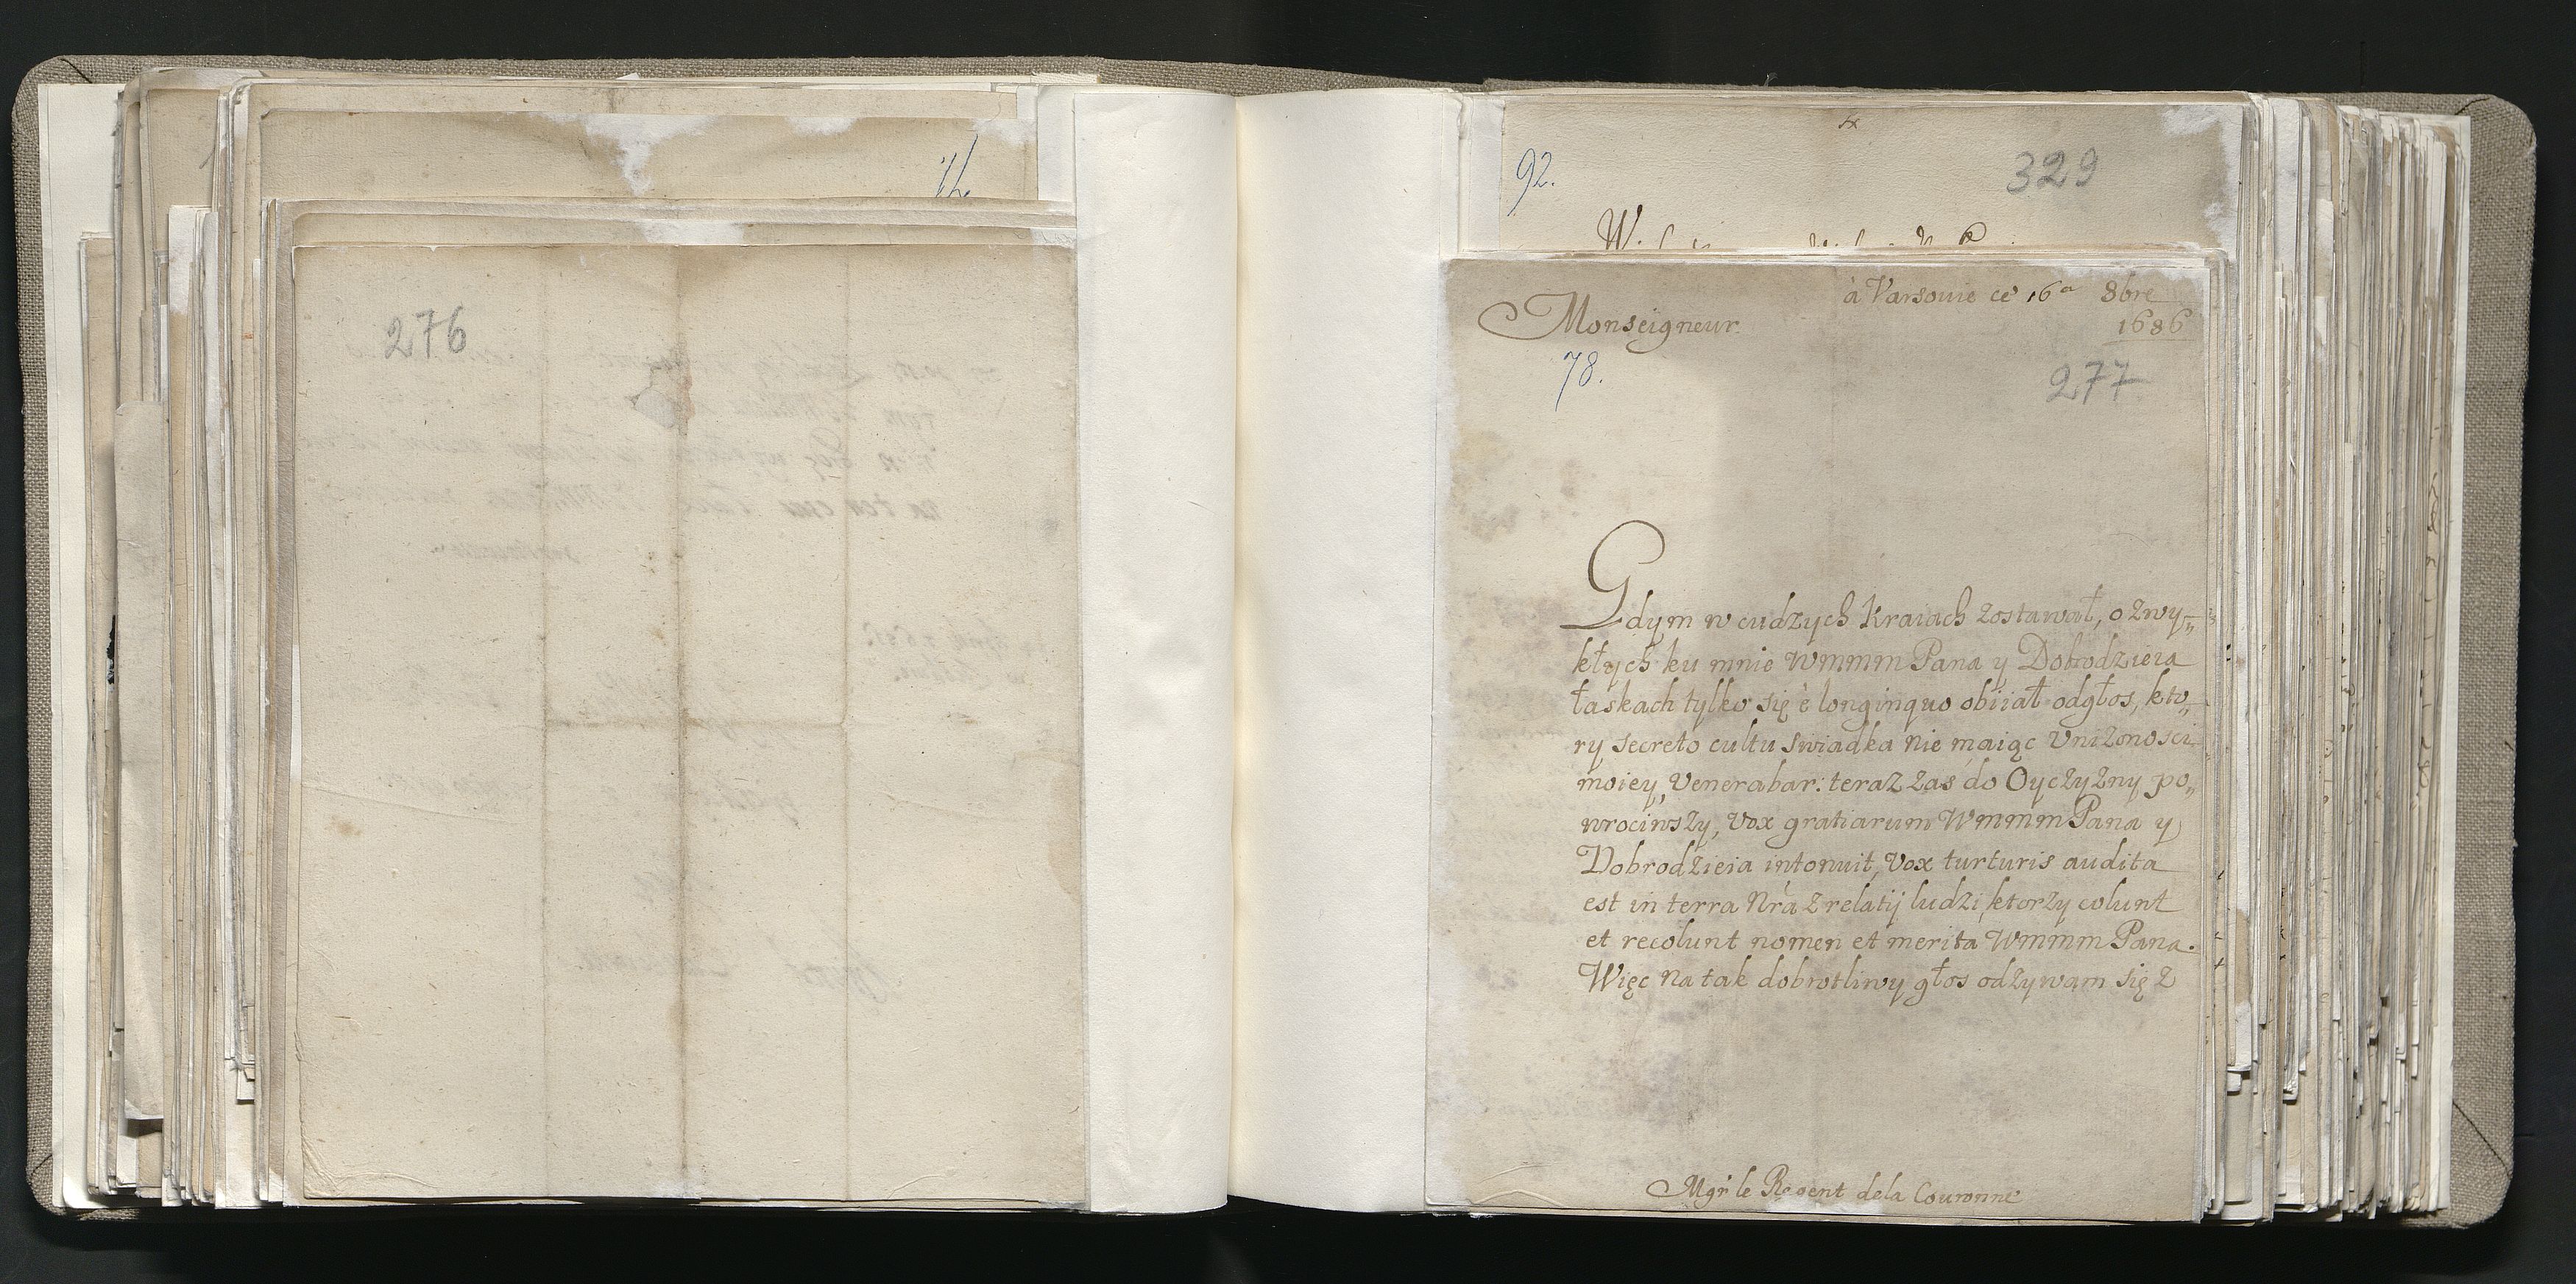 276
92.
329
à Varsovie ce 16a 8bre
1686
Monseigneur
78.
277
Gdym w cudzych kraiach zostawał, o zwy„
kłych ku mnie Wmmm Pana y Dobrodzieia
łaskach tylko się è longinquo obiiał odgłos, kto„
ry secreto cultu swiadka nie maiąc Vniżonosci
moiey, Venerabar: teraz zas do Oyczyzny po„
wrociwszy, Vox gratiarum Wmmm Pana y
Dobrodzieia intonuit, Vox turturis audita
est in terra Nrà z relatij ludzi, ktorzy colunt
et recolunt nomen et merita Wmmm Pana.
Więc na tak dobrotliwy głos odzywam się z
Mgr le Regent dela Couronne